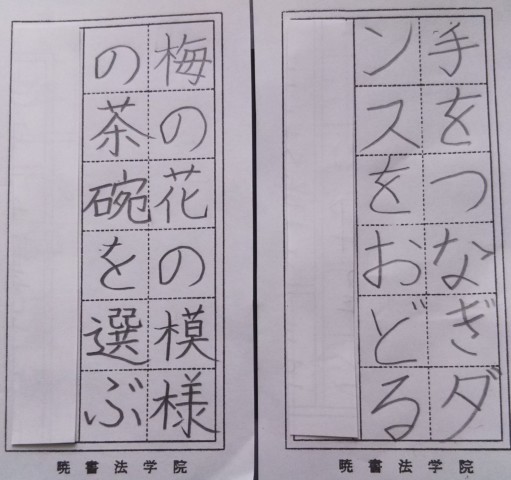 手をつなぎダ
ンスをおどる
暁書法学院
梅の花の模様
の茶碗を選ぶ
暁書法学院